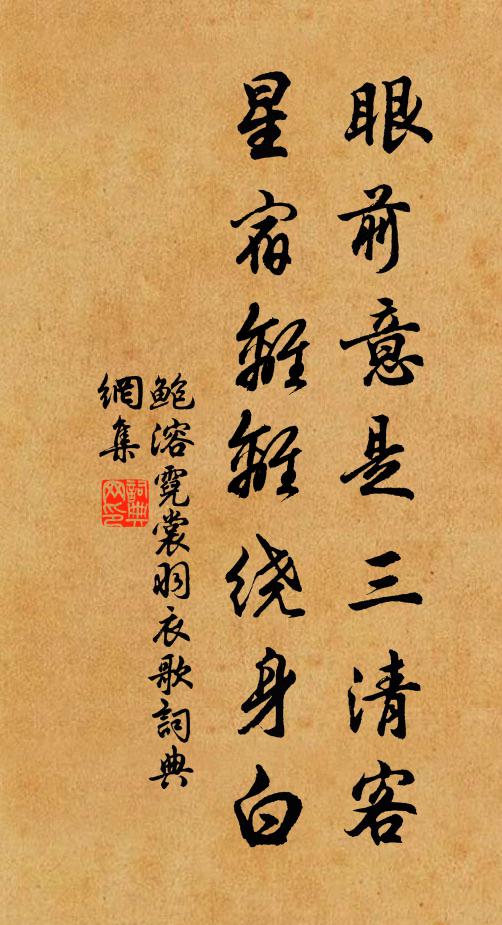 眼前意是三清客
星宿離離绕身白
鲍溶霓裳羽衣歌詞典
網集
詞典
网印